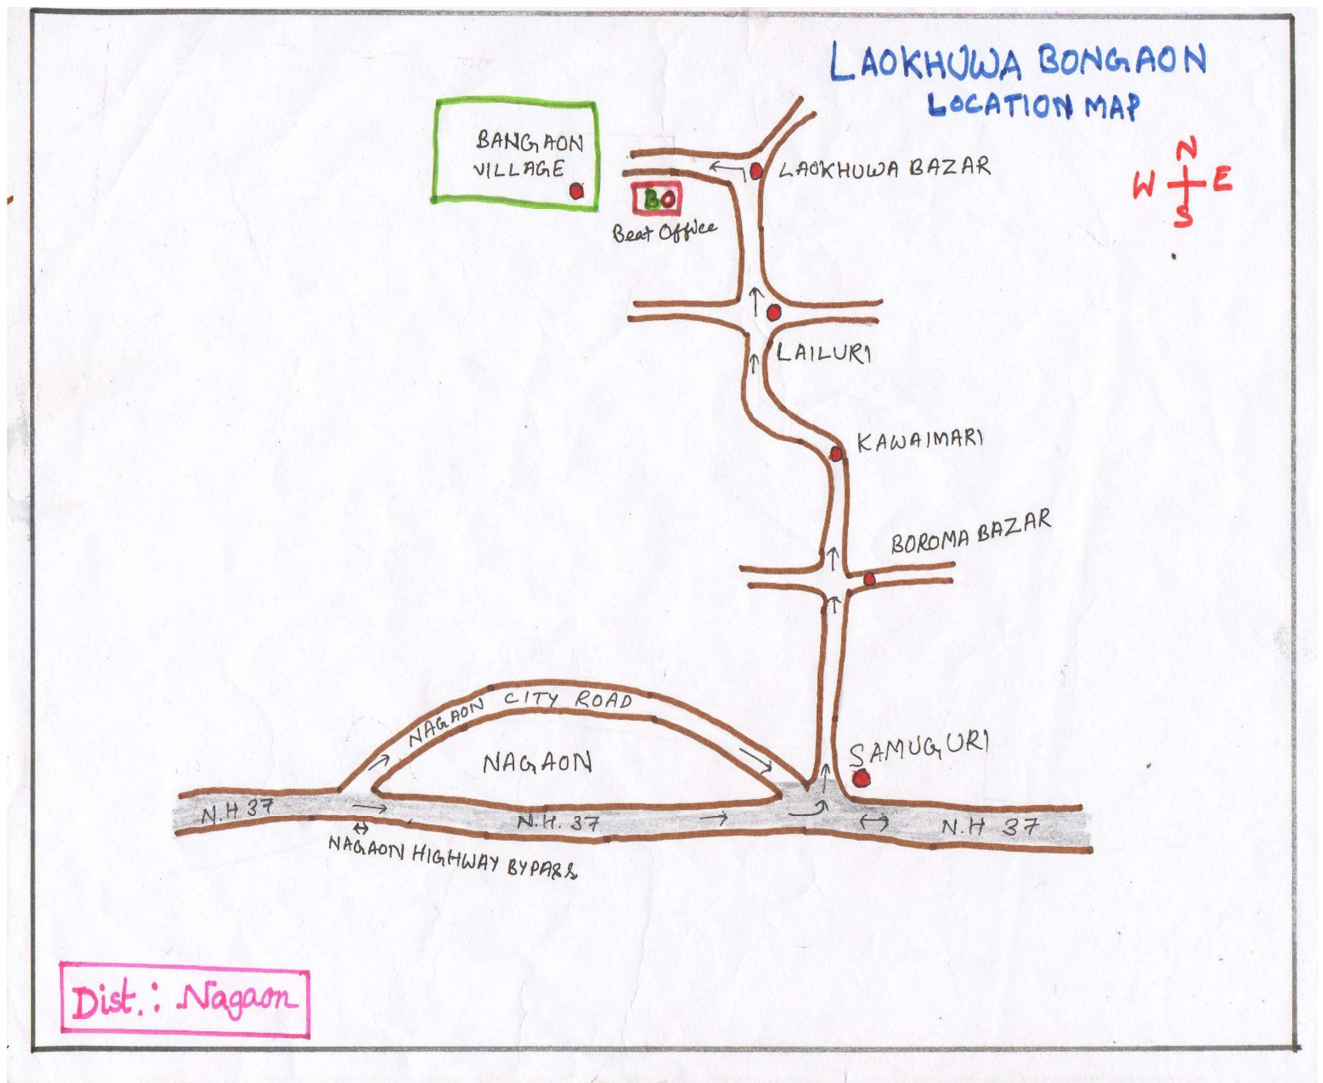 LAOKHUWA BONGAON
LOCATION MAP
BANGAON
VILLAGE
LAOKHUWA BAZAR
N
W E
S
BO
Beat Office
LAILURI
KAWAIMARI
BOROMA BAZAR
NAGAON CITY ROAD
NAGAON
SAMUGURI
N.H 37
N.H. 37
N.H 37
NAGAON HIGHWAY BYPASS
Dist.: Nagaon